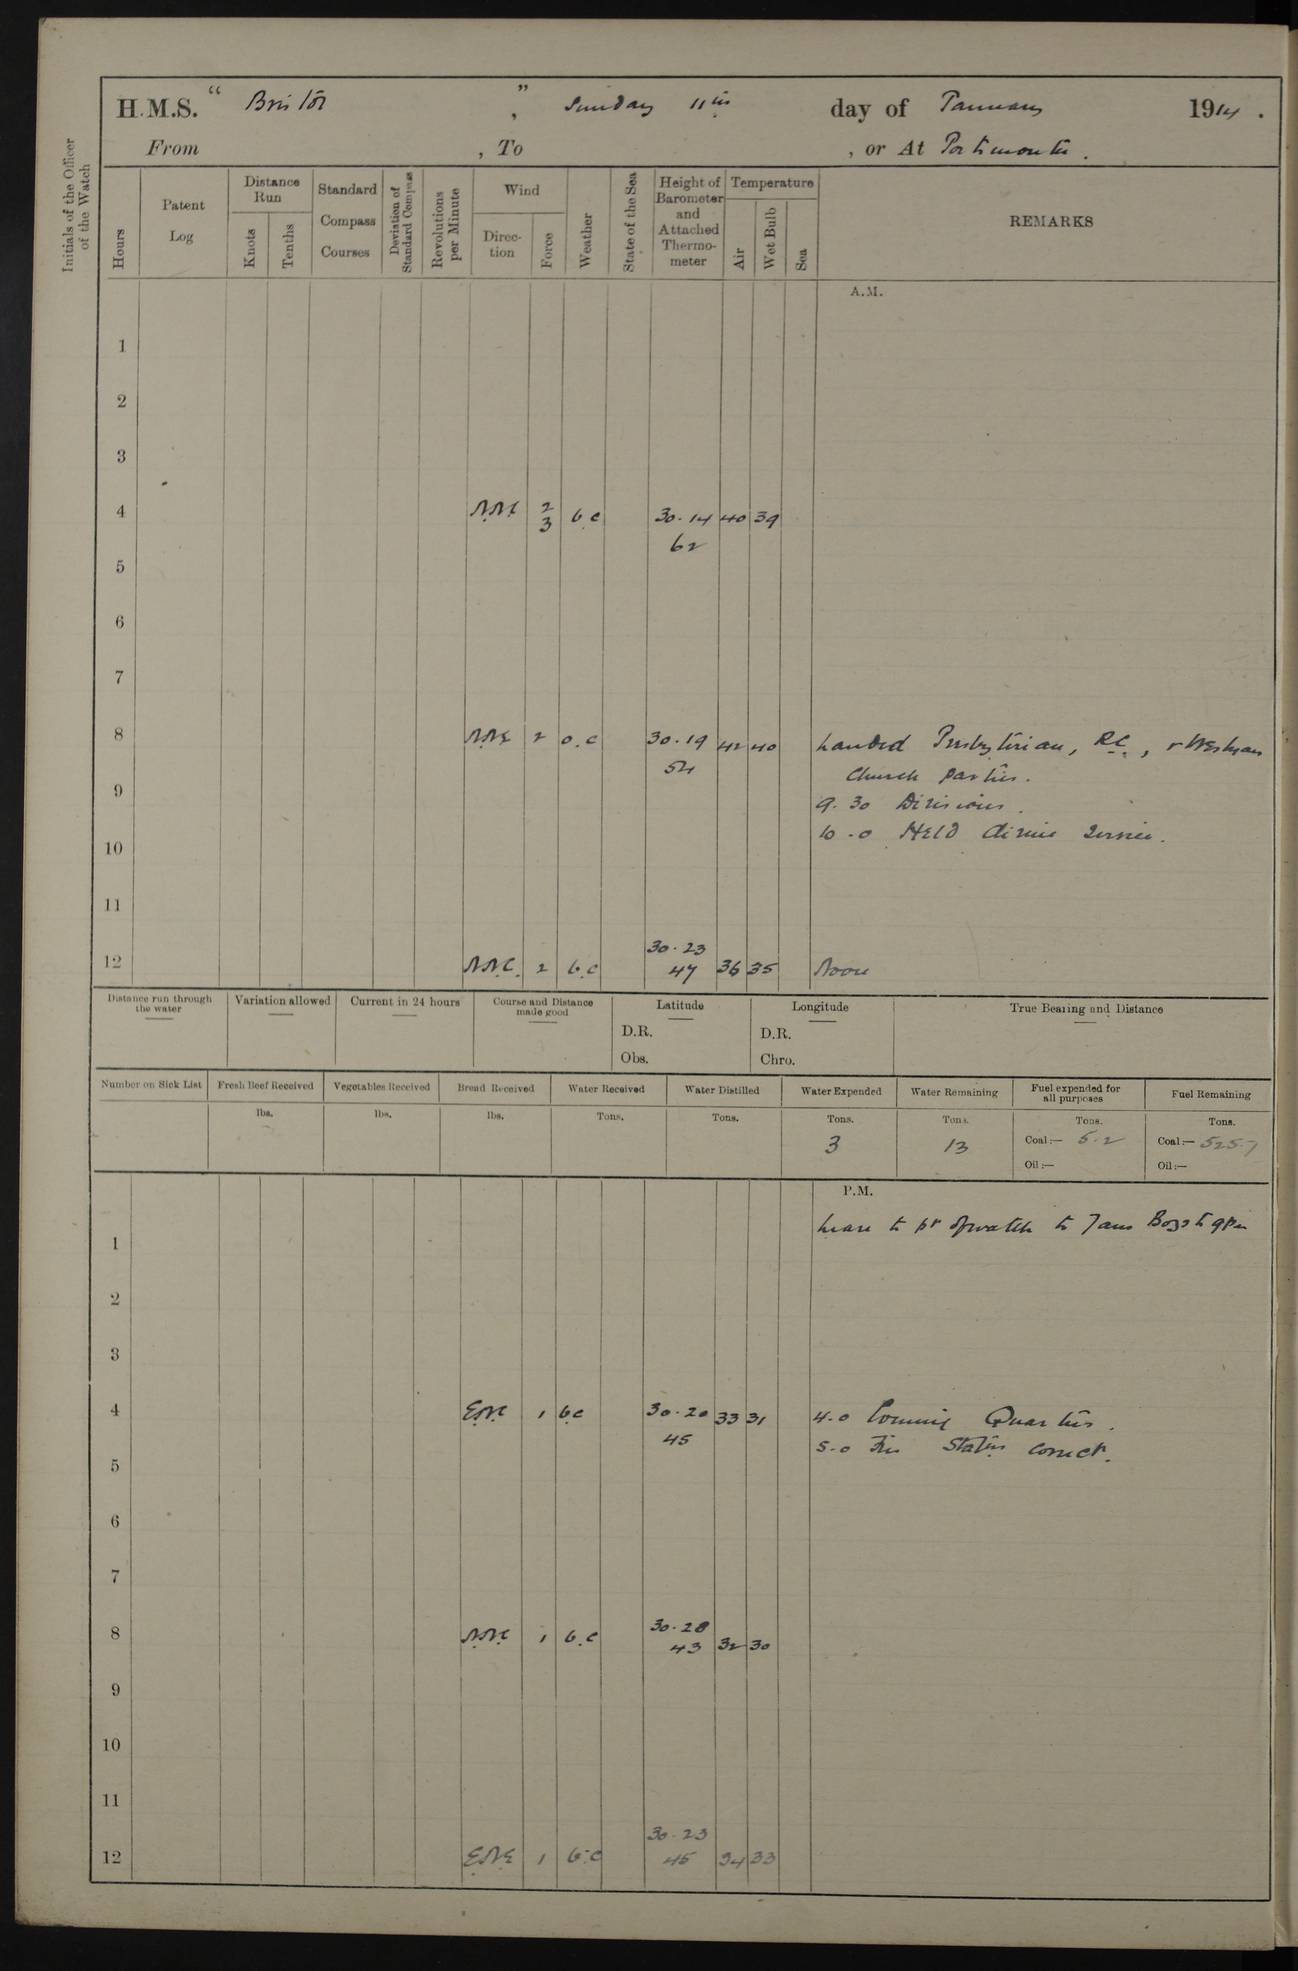 H.M.S. " Bristol ", Sunday 11th day of January 1914.
From , To , or At Portsmouth.
Initials of the Officer of the Watch
Hours Patent Log Distance Run Knots Tenths Standard Compass Courses Deviation of Standard Compass Revolutions per Minute Wind Direction Force Weather State of the Sea Height of Barometer and Attached Thermometer Temperature Air Wet Bulb Sea REMARKS
A.M.
1
2
3
4 N.N.E 2 3 b.c 30.14 62 40 39
5
6
7
8 N.N.E 2 o.c 30.19 54 42 40 Landed Presbyterian, R.C., & Wesleyan
Church parties.
9 9.30 Divisions.
10 10.0 Held divine service.
11
12 N.N.E. 2 b.c 30.23 47 36 35 Noon
Distance run through the water Variation allowed Current in 24 hours Course and Distance made good Latitude Longitude True Bearing and Distance
D.R. D.R.
Obs. Chro.
Number on Sick List Fresh Beef Received Vegetables Received Bread Received Water Received Water Distilled Water Expended Water Remaining Fuel expended for all purposes Fuel Remaining
lbs. lbs. lbs. Tons. Tons. Tons. Tons. Tons. Tons.
3 13 Coal:— 5.2 Coal:— 525.7
Oil:— Oil:—
P.M.
Leave to pt of watch to 7am Boys to 9pm
1
2
3
4 E.N.E 1 b.c 30.20 45 33 31 4.0 Evening Quarters.
5.0 Fire Stations correct.
5
6
7
8 N.N.E 1 b.c 30.28 43 32 30
9
10
11
12 E.N.E 1 b.c 30.23 45 34 33